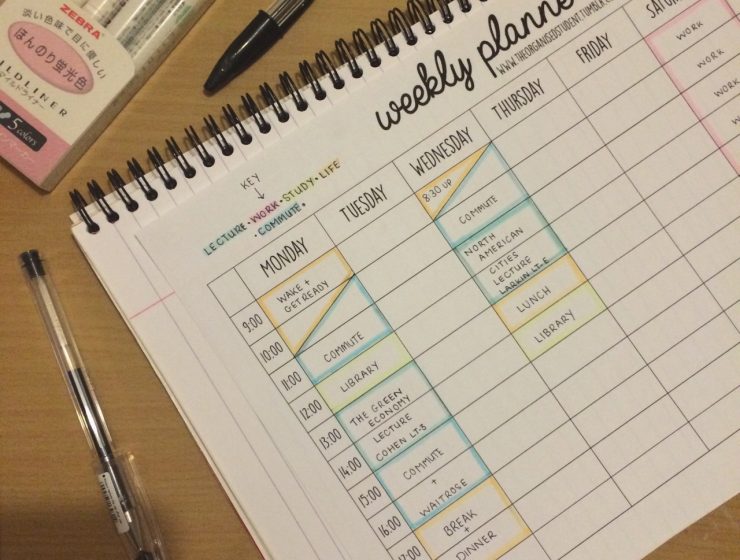 ZEBRA
淡い色味で目に優しい
ほんのり蛍光色
ILDLINER
マイルドライナー
5 colors
weekly planne
WWW.THEORGANISEDSTUDENT.TUMBLR.C
KEY
LECTURE • WORK • STUDY • LIFE
• COMMUTE •
MONDAY
TUESDAY
WEDNESDAY
THURSDAY
FRIDAY
SATU
9:00
10:00
11:00
12:00
13:00
14:00
15:00
16:00
17:00
WAKE +
GET READY
COMMUTE
LIBRARY
THE GREEN
ECONOMY
LECTURE
COHEN LT-B
COMMUTE
+
WAITROSE
BREAK
+
DINNER
8:30 UP
COMMUTE
NORTH
AMERICAN
CITIES
LECTURE
LARKIN LT-E
LUNCH
LIBRARY
WORK
WORK
WORK
W